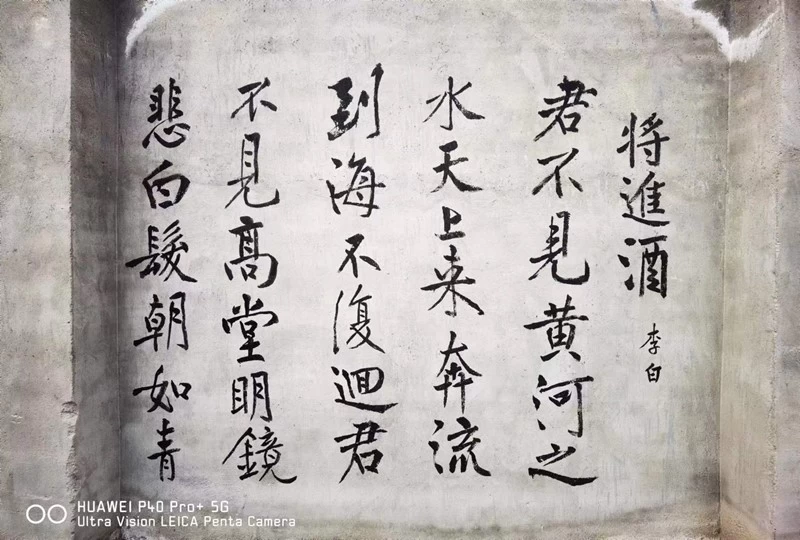 將進酒
李白
君不見黄河之
水天上来奔流
到海不復迴君
不見高堂明鏡
悲白髮朝如青
HUAWEI P40 Pro+ 5G
Ultra Vision LEICA Penta Camera